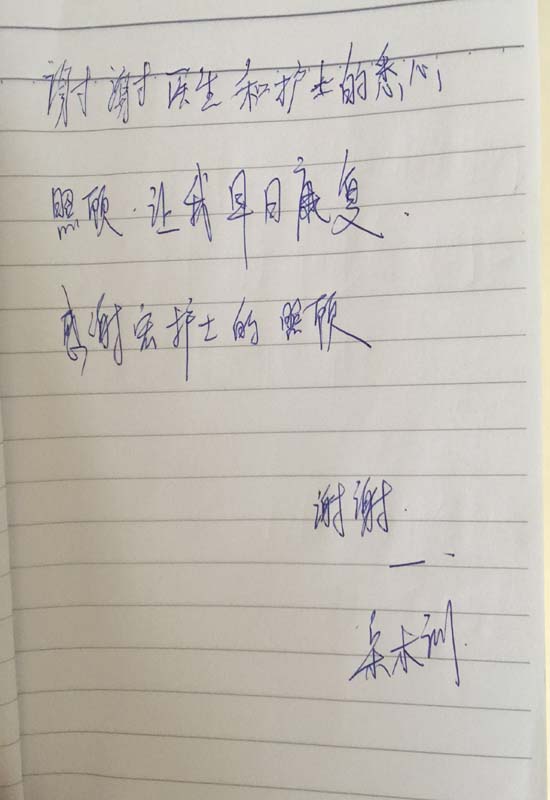 谢谢医生和护士的悉心
照顾.让我早日康复.
感谢宏护士的照顾
谢谢.